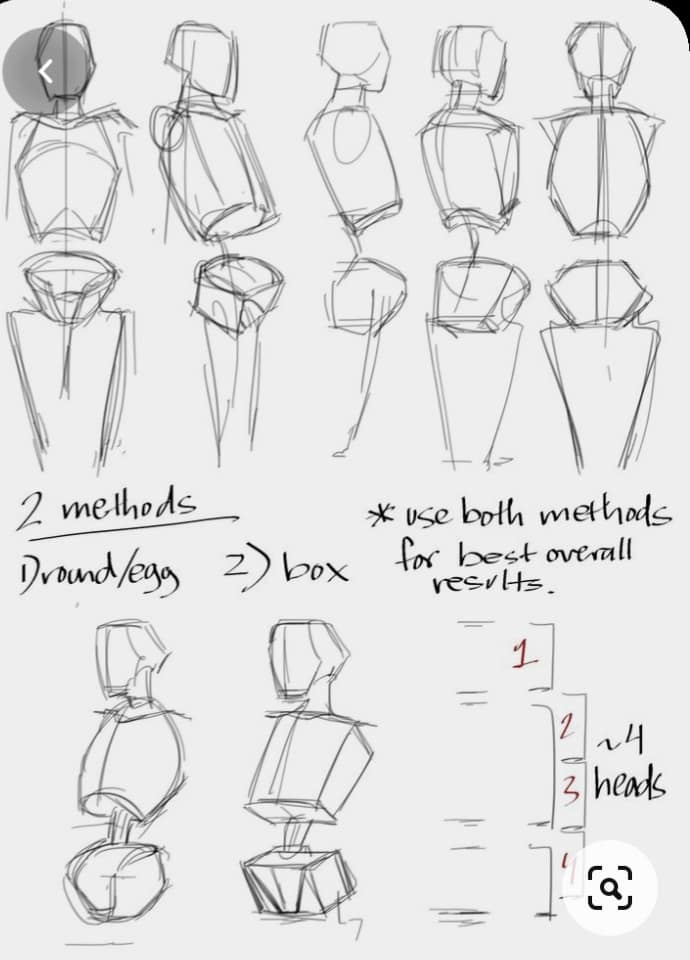 2 methods
1) round/egg 2) box
* use both methods
for best overall
results.
1
2
3
4
~4
heads